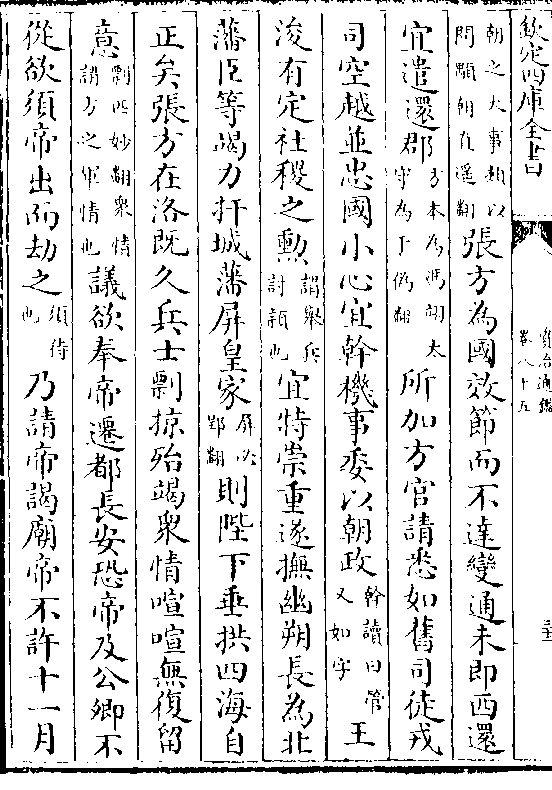 欽定四庫全書
資治通鑑
卷八十五
朝之大事類以問顒朝直遥翻張方為國效節而不達變通未即西還
宜遣還郡方本為馮翊太守為于偽翻所加方官請悉如舊司徒戎
司空越並忠國小心宜幹機事委以朝政幹讀曰管又如字王
浚有定社稷之勲謂舉兵討穎也宜特崇重遂撫幽朔長為北
藩臣等竭力扞城藩屏皇家屏必郢翻則陛下垂拱四海自
正矣張方在洛既久兵士剽掠殆竭衆情喧喧無復留
意剽匹妙翻衆情謂方之軍情也議欲奉帝遷都長安恐帝及公卿不
從欲須帝出而劫之須待也乃請帝謁廟帝不許十一月